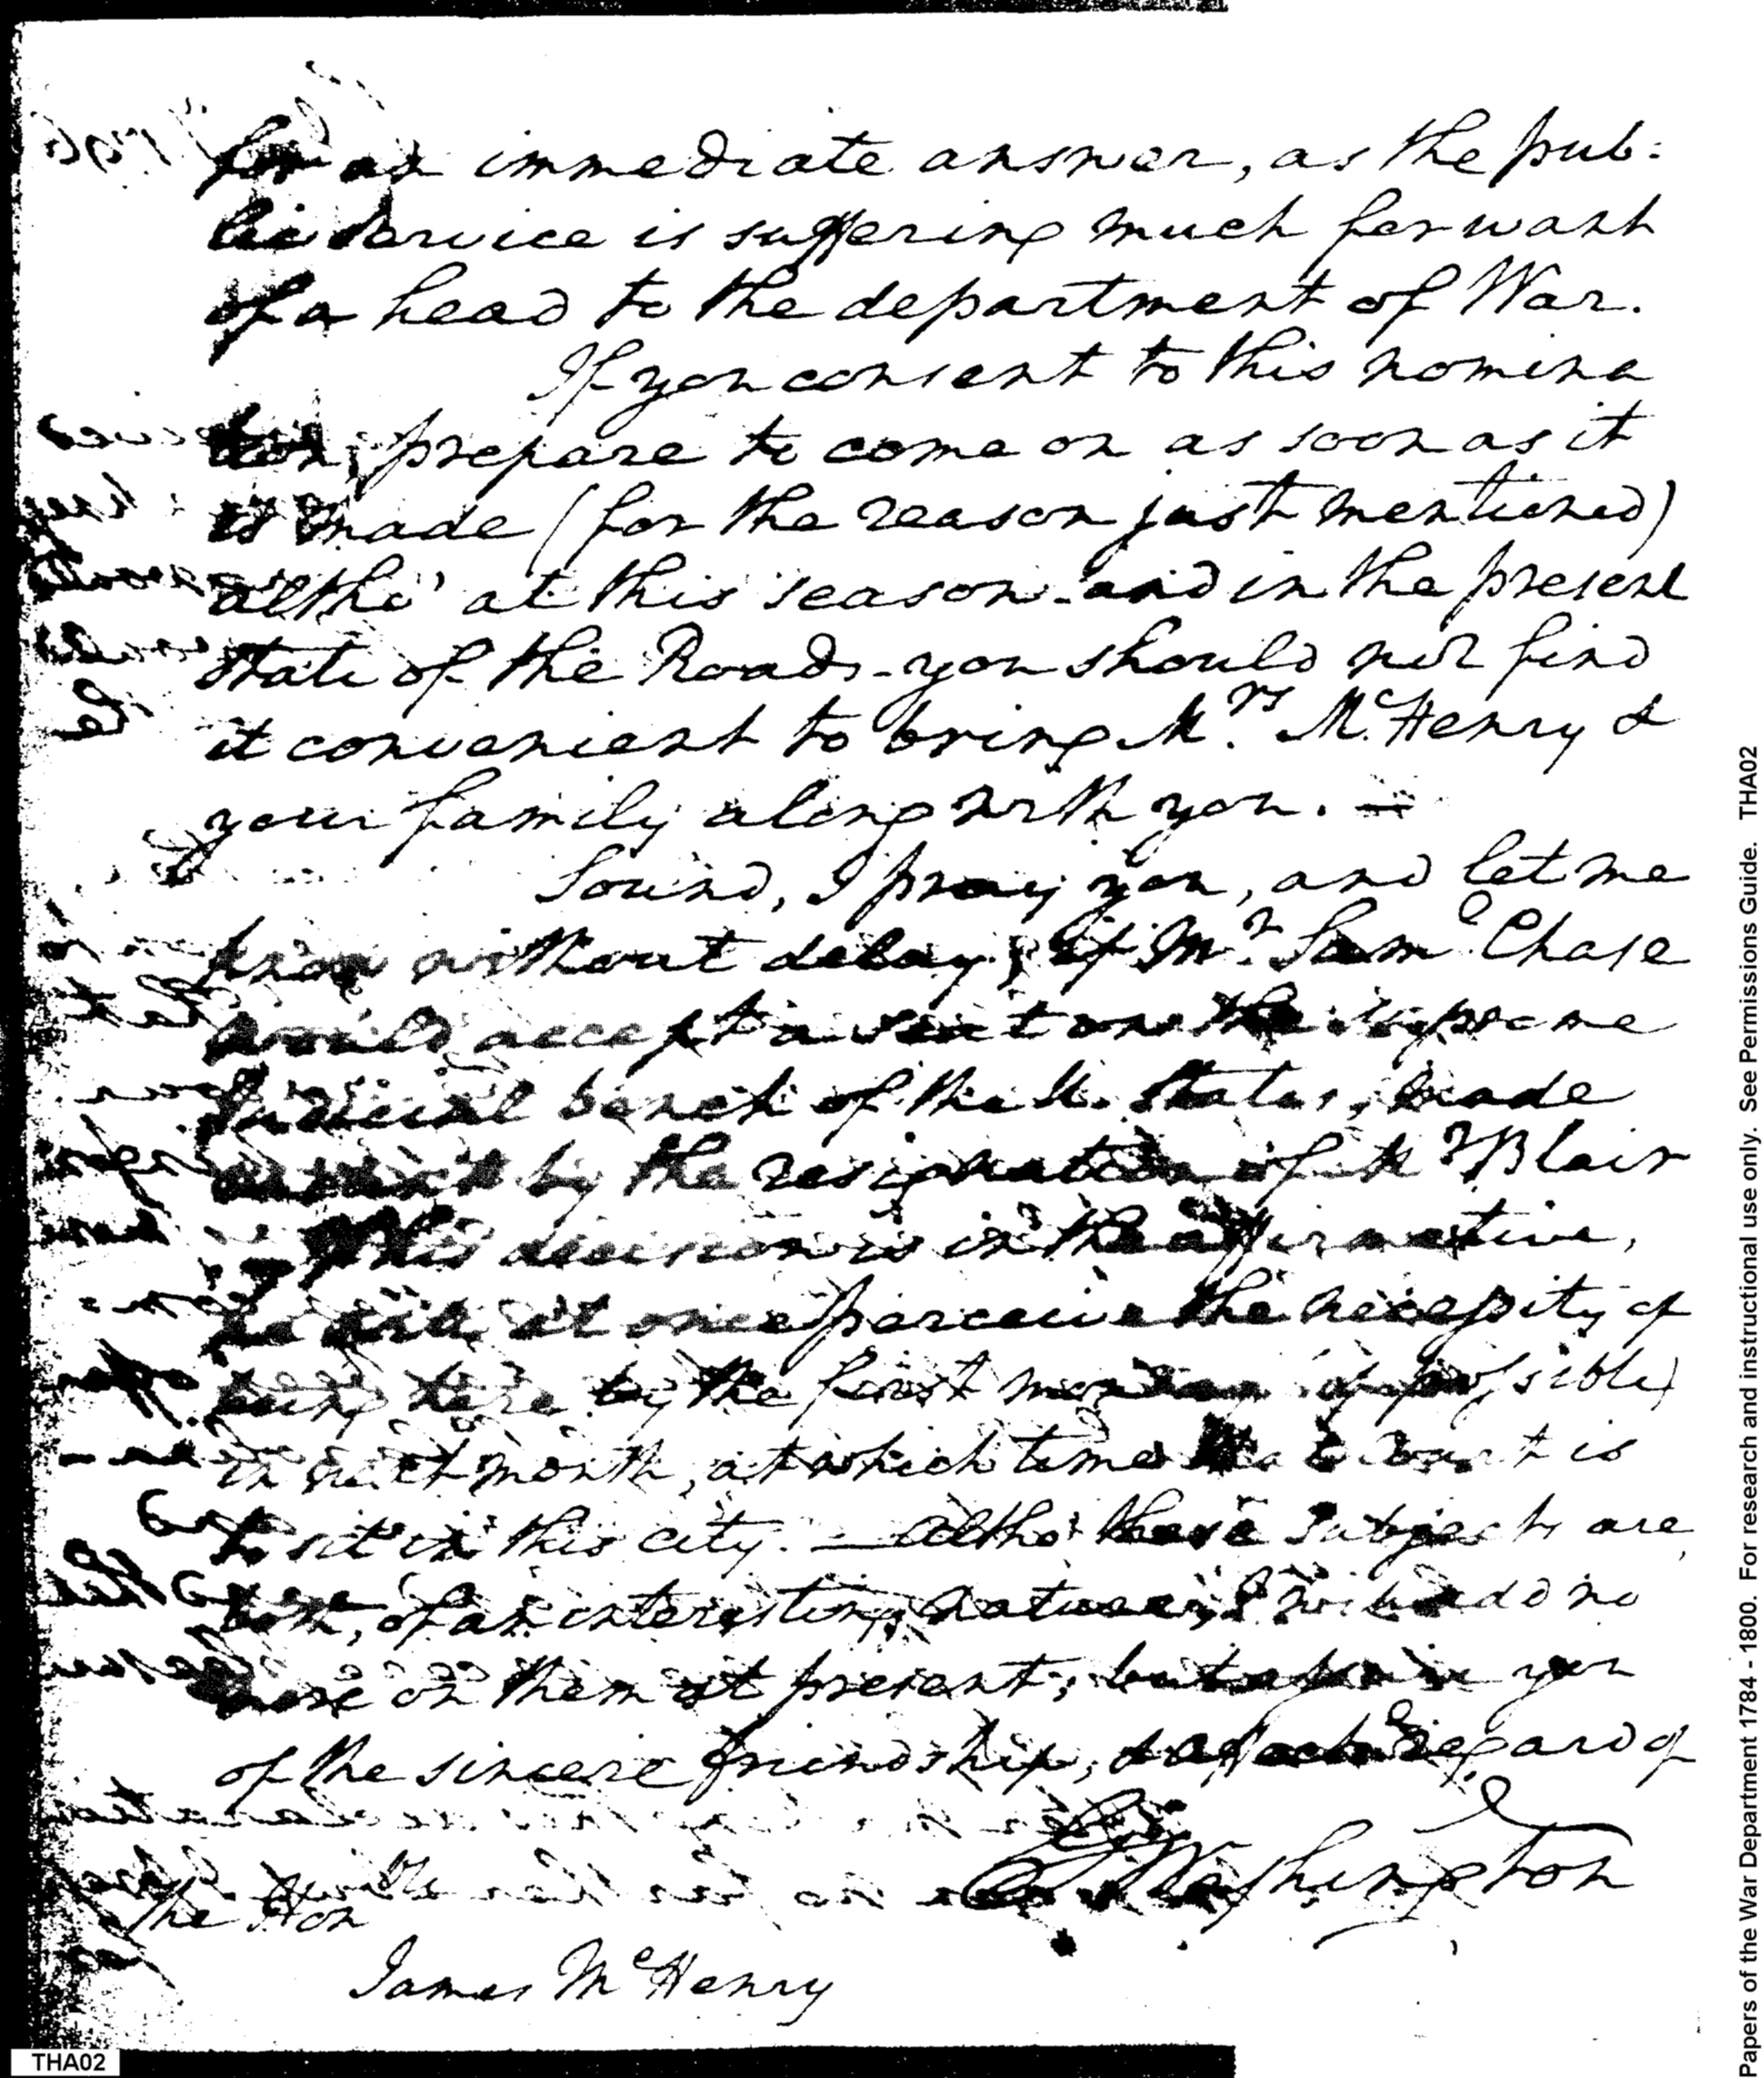 for an immediate answer, as the pub:
lic service is suffering much for want
of a head to the department of War.
If you consent to this nomina
tion, prepare to come on as soon as it
is made (for the reason just mentioned)
altho' at this season - and in the present
state of the Roads - you should not find
it convenient to bring Mrs. McHenry &
your family along with you. —
Sound, I pray you, and let me
know without delay, if Mr. Saml Chase
would accept a seat on the supreme
Judicial bench of the U. States, made
vacant by the resignation of Mr Blair
If his decision is in the affirmative,
he will at once perceive the necessity of
being here by the first monday (if possible)
in next month, at which time that Court is
to sit in this city. — altho' these subjects are
both, of an interesting nature, I will add no
more on them at present; but assure you
of the sincere friendship, & affecte regard of
Go Washington
The Hon
James McHenry
THA02
Papers of the War Department 1784 - 1800. For research and instructional use only. See Permissions Guide. THA02